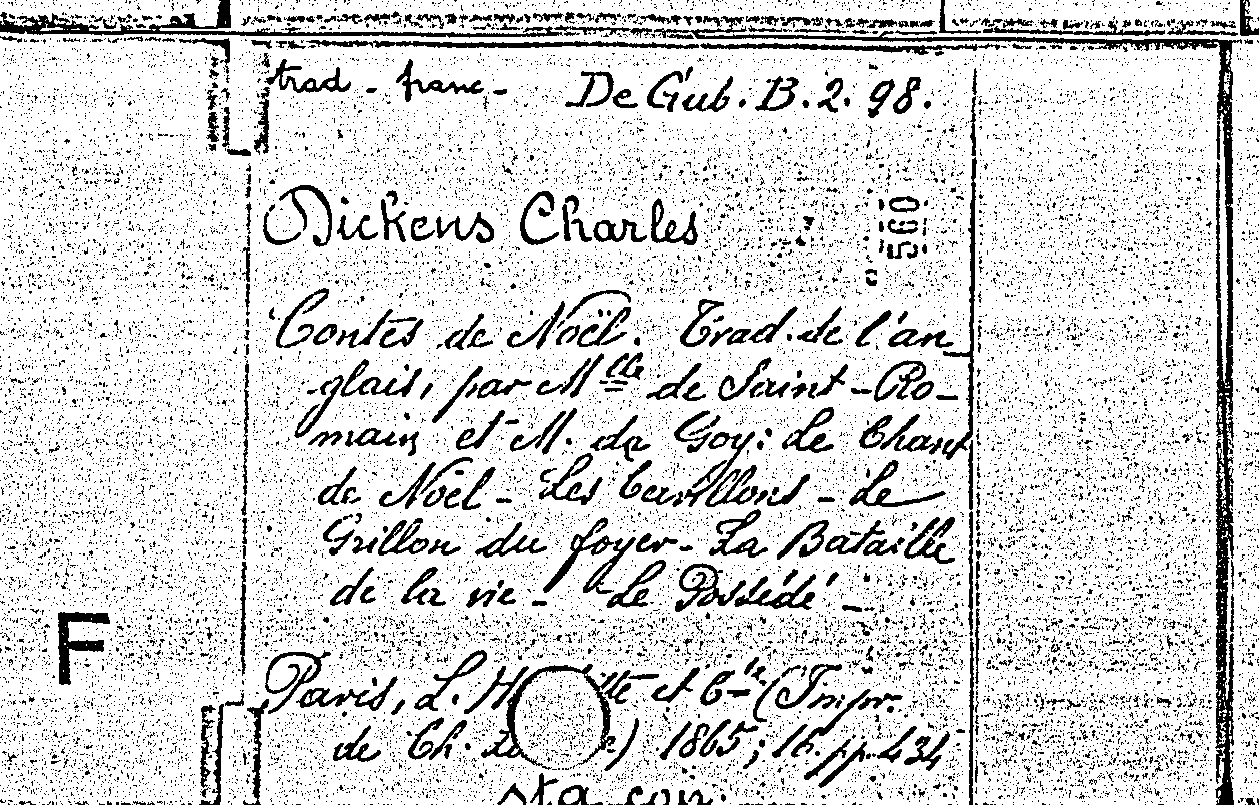 trad - franc - De Gub. B. 2. 98.
Dickens Charles
560
Contes de Noël. Trad. de l'an_
glais, par Mlle de Saint-Ro-
main et M. de Goy: Le Chant
de Noël - Les Carillons - Le
Grillon du foyer - La Bataille
de la vie - Le Possédé -
F
Paris, L. et Cie (Impr.
de Ch. 1865; 16. pp. 434
sta con.